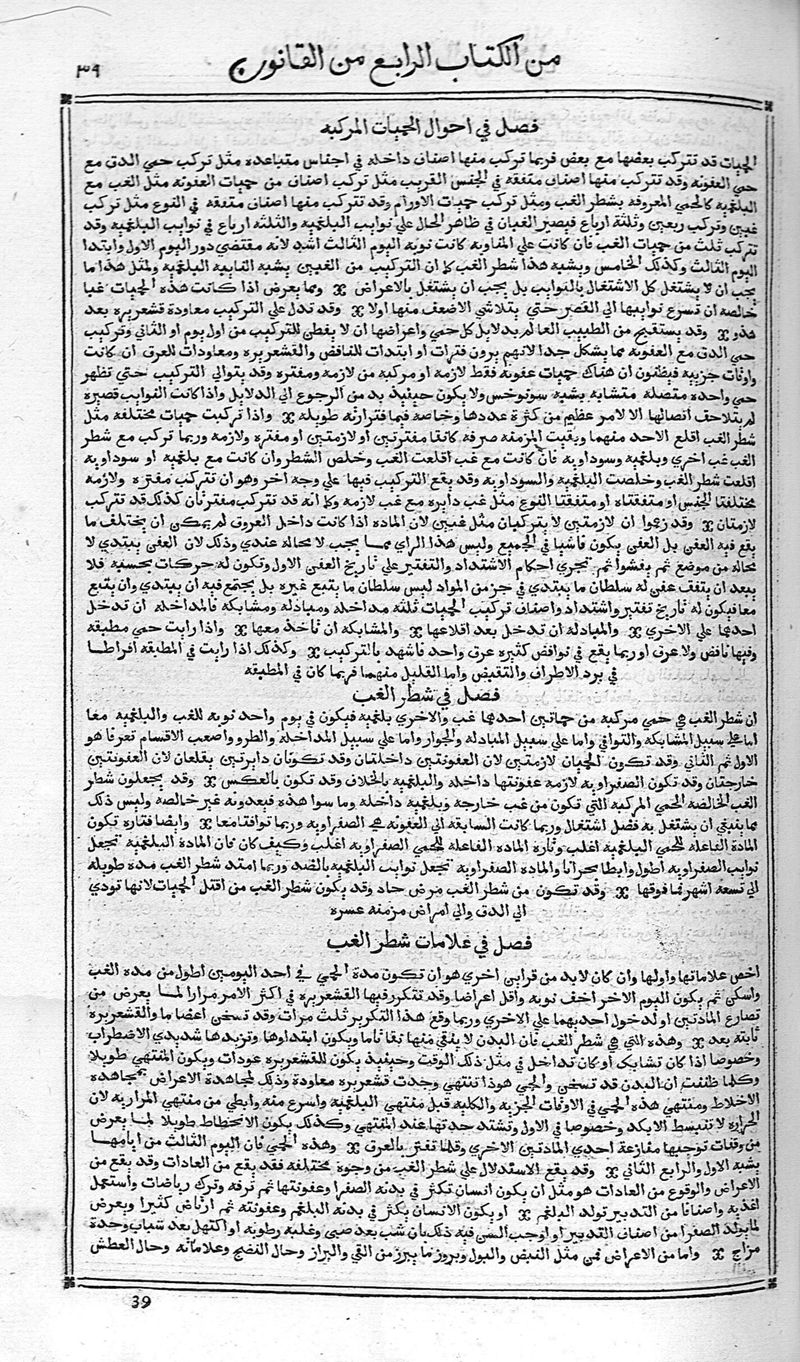 من الكتاب الرابع من القانون
٣٩
فصل في احوال الحميات المركبه
الحميات قد تتركب بعضها مع بعض فربما تركب منها اصناف داخله في اجناس متباعده مثل تركب حمي الدق مع
حمي العفونه وقد تتركب منها اصناف متفقه في الجنس القريب مثل تركب اصناف من حميات العفونه مثل الغب مع
البلغميه كالحمي المعروفه بشطر الغب ومثل تركب حميات الاورام وقد تتركب منها اصناف متفقه في النوع مثل تركب
غبين وتركب ربعين وثلثة ارباع فيصير الغبان في ظاهر الحال علي نوايب البلغميه والثلثه ارباع في نوايب البلغميه وقد
تتركب ثلث من حميات الغب فان كانت علي المناوبه كانت نوبه اليوم الثالث اشد لانه مقتضي دور اليوم الاول وابتدا
اليوم الثالث وكذلك الخامس ويشبه هذا شطر الغب كما ان التركيب من الغبين يشبه النايبه البلغميه ولمثل هذا ما
يجب ان لا يشتغل كل الاشتغال بالنوايب بل يجب ان يشتغل بالاعراض ۞ ومما يعرض اذا كانت هذه الحميات غبا
خالصه ان تسرع نوايبها الي القصر حتي يتلاشي الاضعف منها اولا ۞ وقد تدل علي التركيب معاودة قشعريره بعد
هدو ۞ وقد يستقبح من الطبيب العالم بدلايل كل حمي واعراضها ان لا يفطن للتركيب من اول يوم او الثاني وتركيب
حمي الدق مع العفونه مما يشكل جدا لانهم يرون فترات او ابتدات للنافض والقشعريره ومعاودات للعرق ان كانت
واوقات جزييه فيظنون ان هناك حميات عفونه فقط لازمه او مركبه من لازمه ومفتره وقد يتوالي التركيب حتي تظهر
حمي واحده متصله متشابه يشبه سونوخس ولا يكون حينيذ بد من الرجوع الي الدلايل واذا كانت النوايب قصيره
لم يتلاحق اتصالها الا لامر عظيم من كثرة عددها وخاصه فيما فتراتها طويله ۞ واذا تركبت حميات مختلفه مثل
شطر الغب اقلع الاحد منهما وبقيت المزمنه صرفه كانتا مفترتين او لازمتين او مفتره ولازمه وربما تركب مع شطر
الغب غب اخري وبلغميه وسوداويه فان كانت مع غب اقلعت الغب وخلص الشطر وان كانت مع بلغميه او سوداويه
اقلعت شطر الغب وخلصت البلغميه والسوداويه وقد يقع التركيب فيها علي وجه اخر وهو ان تتركب مفتره ولازمه
مختلفتا الجنس او متفقتاه او متفقتا النوع مثل غب دايره مع غب لازمه وكما انه قد تتركب مفترتان كذلك قد تتركب
لازمتان ۞ وقد زعموا ان لازمتين لا يتركبان مثل غبين لان الماده اذا كانت داخل العروق لم يمكن ان يختلف ما
يقع فيه العفن بل العفن يكون فاشيا في الجميع وليس هذا الراي مما يجب لا محاله عندي وذلك لان العفن يبتدي لا
محاله من موضع ثم يفشوا ثم تجري احكام الاشتداد والتفتير علي تاريخ العفن الاول وتكون له حركات بحسبه فلا
يبعد ان يتفق عفن له سلطان ما يبتدي في جز من المواد ليس سلطان ما يتبع غيره بل يجتمع فيه ان يبتدي وان يتبع
معا فيكون له تاريخ تفتير واشتداد واصناف تركيب الحميات ثلثه مداخله ومبادله ومشابكه فالمداخله ان تدخل
احديهما علي الاخري ۞ والمبادله ان تدخل بعد اقلاعها ۞ والمشابكه ان تاخذ معها ۞ واذا رايت حمي مطبقه
وفيها نافض ولا عرق او ربما يقع في نوافض كثيره عرق واحد فاشهد بالتركيب ۞ وكذلك اذا رايت في المطبقه افراطا
في برد الاطراف والتقبض واما القليل منهما فربما كان في المطبقه
فصل في شطر الغب
ان شطر الغب هي حمي مركبه من حماتين احديهما غب والاخري بلغميه فيكون في يوم واحد نوبه للغب والبلغميه معا
اما علي سبيل المشابكه والتوافي واما علي سبيل المبادله والجوار واما علي سبيل المداخله والطرو واصعب الاقسام تعرفا هو
الاول ثم الثاني وقد تكون الحميان لازمتين لان العفونتين داخلتان وقد تكونان دايرتين يقلعان لان العفونتين
خارجتان وقد تكون الصفراويه لازمه عفونتها داخله والبلغميه بالخلاف وقد تكون بالعكس ۞ وقد يجعلون شطر
الغب الخالصه الحمي المركبه التي تكون من غب خارجه وبلغميه داخله وما سوا هذه فيعدونه غير خالصه وليس ذلك
مما ينبغي ان يشتغل به فضل اشتغال وربما كانت السابقه الي العفونه هي الصفراويه وربما توافتا معا ۞ وايضا فتاره تكون
الماده الفاعله للحمي البلغميه اغلب وتاره الماده الفاعله للحمي الصفراويه اغلب وكيف كان فان الماده البلغميه تجعل
نوايب الصفراويه اطول وابطا بحرانا والماده الصفراويه تجعل نوايب البلغميه بالضد وربما امتد شطر الغب مدة طويله
الي تسعه اشهر فما فوقها ۞ وقد تكون من شطر الغب مرض حاد وقد يكون شطر الغب من اقتل الحميات لانها تودي
الي الدق والي امراض مزمنه عسره
فصل في علامات شطر الغب
اخص علاماتها واولها وان كان لابد من قراين اخري هو ان تكون مدة الحمي في احد اليومين اطول من مده الغب
واسكن ثم يكون اليوم الاخر اخف نوبه واقل اعراضا وقد تتكرر فيها القشعريره في اكثر الامر مرارا لما يعرض من
تصارع المادتين او لدخول احديهما علي الاخري وربما وقع هذا التكرير ثلث مرات وقد تسخن اعضا ما والقشعريره
ثابته بعد ۞ وهذه التي هي شطر الغب فان البدن لا ينقي منها نقا تاما ويكون ابتداوها وتزيدها شديدي الاضطراب
وخصوصا اذا كان تشابك او كان تداخل في مثل ذلك الوقت وحينيذ يكون للقشعريره عودات ويكون المنتهي طويلا
وكلما ظننت ان البدن قد تسخن والحمي هوذا تنتهي وجدت قشعريره معاودة وذلك لمجاهدة الاعراض بمجاهده
الاخلاط ومنتهي هذه الحمي في الاوقات الجزيه والكليه قبل منتهي البلغميه واسرع منه وابطي من منتهي المراريه لان
الحراره لا تنبسط الا بكد وخصوصا في الاول وتشتد حدتها عند المنتهي وكذلك يكون الانحطاط طويلا لما يعرض
من وقفات توجبها مفازعة احدي المادتين الاخري وقلما تفتر بالعرق ۞ وهذه الحمي فان اليوم الثالث من ايامها
يشبه الاول والرابع الثاني ۞ وقد يقع الاستدلال علي شطر الغب من وجوه مختلفه فقد يقع من العادات وقد يقع من
الاعراض والوقوع من العادات هو مثل ان يكون انسان تكثر في بدنه الصفرا وعفونتها ثم ترفه وترك رياضات واستعمل
اغذيه واصنافا من التدبير تولد البلغم ۞ او يكون الانسان يكثر في بدنه البلغم وعفونته ثم ارتاض كثيرا ويعرض
لما يولد الصفرا من اصناف التدبير او اوجب السن فيه ذلك بان شب بعد صبي وغلبه رطوبه او اكتهل بعد شباب وحدة
مزاج ۞ واما من الاعراض فمن مثل النبض والبول وبروز ما يبرز من القي والبراز وحال النضج وعلاماته وحال العطش
39